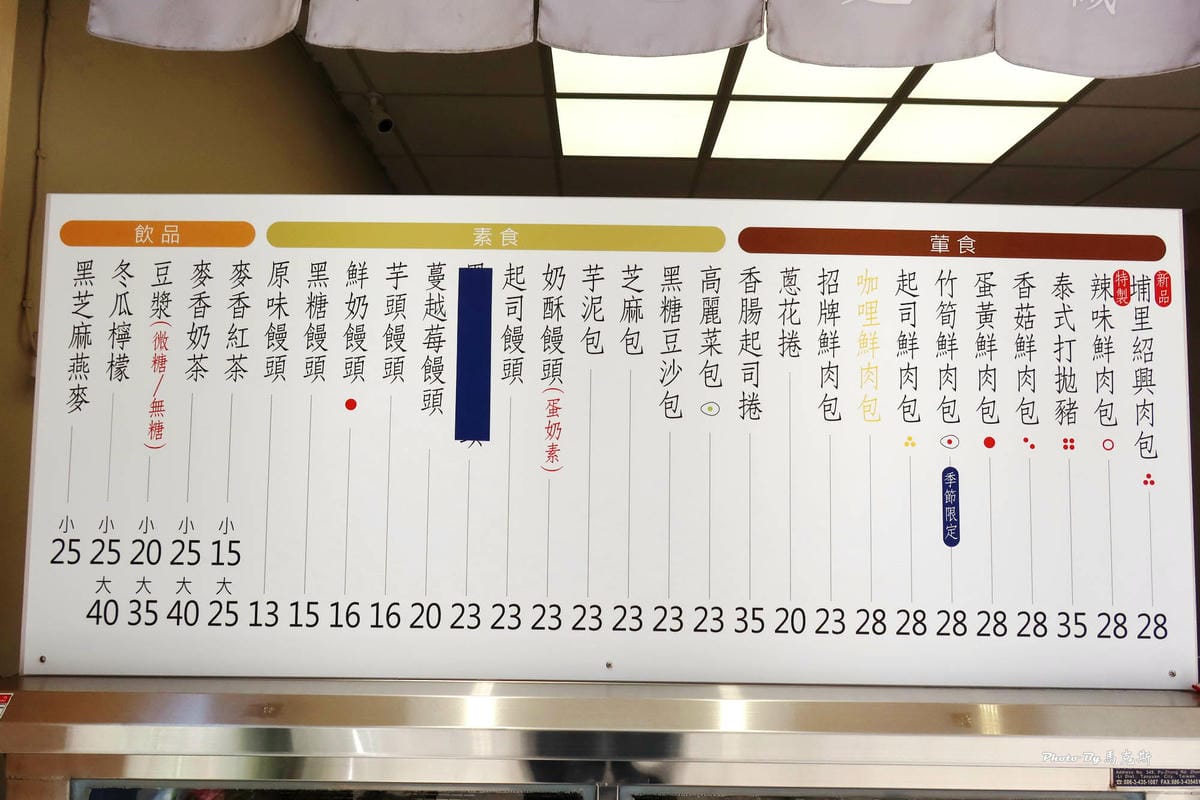 葷食
新品
埔里紹興肉包
28
特製
辣味鮮肉包
28
泰式打拋豬
35
香菇鮮肉包
28
蛋黃鮮肉包
28
竹筍鮮肉包
季節限定
28
起司鮮肉包
28
咖哩鮮肉包
28
招牌鮮肉包
23
蔥花捲
20
香腸起司捲
35
素食
高麗菜包
23
黑糖豆沙包
23
芝麻包
23
芋泥包
23
奶酥饅頭(蛋奶素)
23
起司饅頭
23
23
蔓越莓饅頭
20
芋頭饅頭
16
鮮奶饅頭
16
黑糖饅頭
15
原味饅頭
13
飲品
麥香紅茶
小
15
大
25
麥香奶茶
小
25
大
40
豆漿(微糖/無糖)
小
20
大
35
冬瓜檸檬
小
25
大
40
黑芝麻燕麥
小
25
Photo By 馬克斯